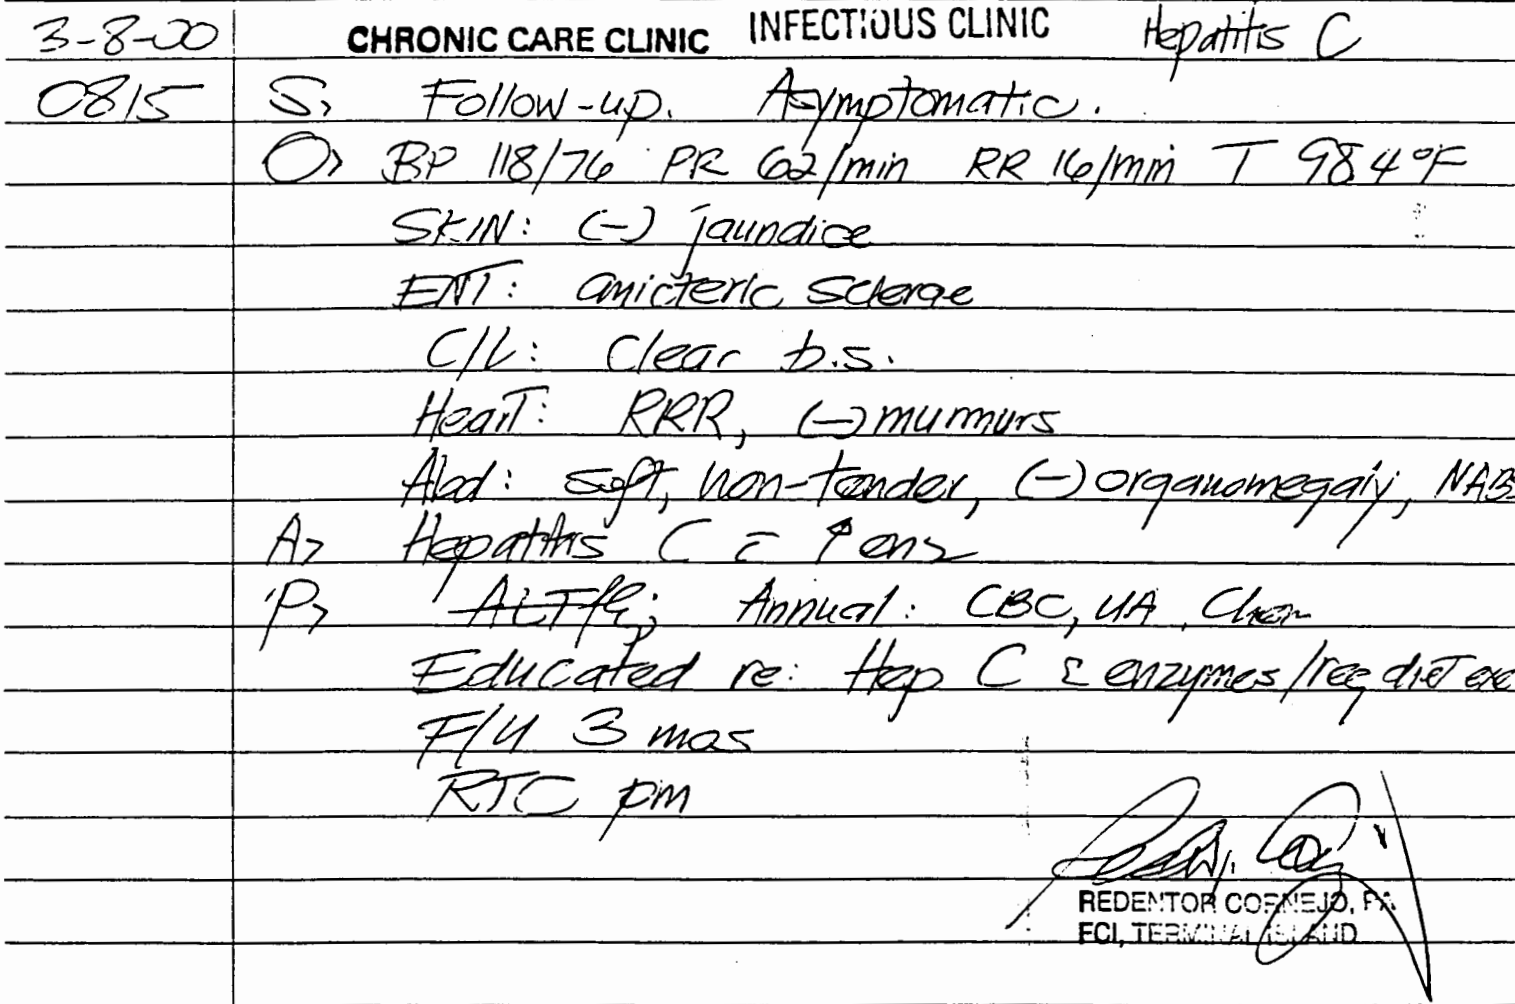 3-8-00 CHRONIC CARE CLINIC INFECTIOUS CLINIC Hepatitis C
0815 S> Follow-up. Asymptomatic.
O> BP 118/76 PR 62/min RR 16/min T 98.4°F
SKIN: (-) jaundice
ENT: anicteric sclerae
C/L: Clear b.s.
Heart: RRR, (-) murmurs
Abd: soft, non-tender, (-) organomegaly, NABS
A> Hepatitis C c̄ ↑ enz
P> Annual: CBC, UA, Chem
Educated re: Hep C c̄ enzymes/reg diet exe
F/U 3 mos
RTC prn
REDENTOR CORNEJO, PA
FCI, TERMINAL ISLAND